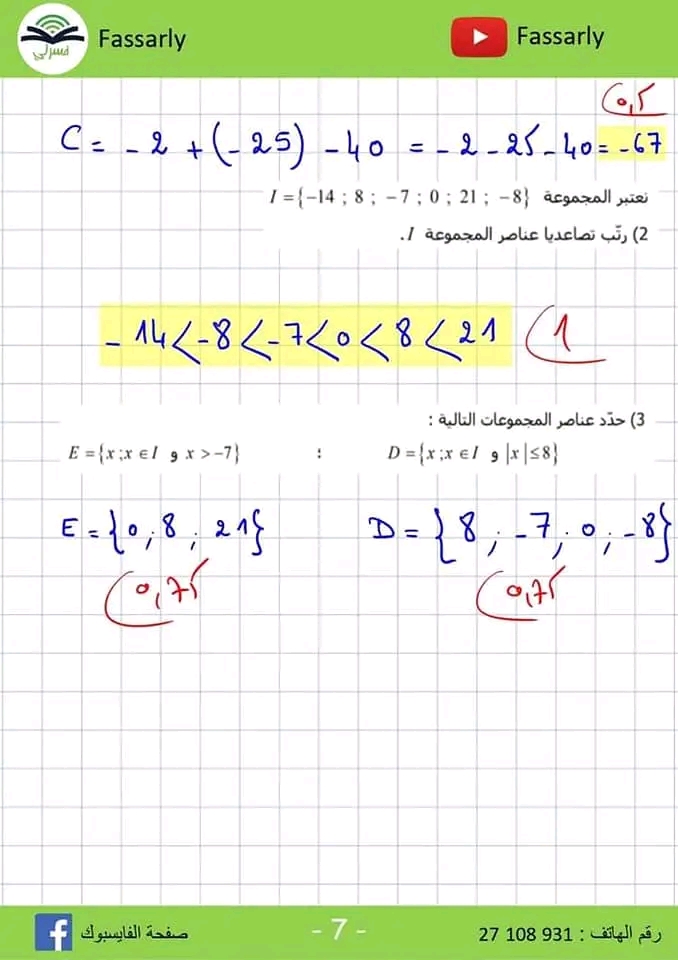 فسرلي Fassarly Fassarly
0,5
C = - 2 + (- 25) - 40 = - 2 - 25 - 40 = - 67
نعتبر المجموعة I = {−14 ; 8 ; −7 ; 0 ; 21 ; −8}
2) رتّب تصاعديا عناصر المجموعة I.
- 14 < - 8 < - 7 < 0 < 8 < 21
1
3) حدّد عناصر المجموعات التالية :
D = {x ; x ∈ I و |x| ≤ 8} : E = {x ; x ∈ I و x > −7}
E = {0 ; 8 ; 21} D = {8 ; -7 ; 0 ; -8}
0,75 0,75
صفحة الفايسبوك - 7 - رقم الهاتف : 27 108 931